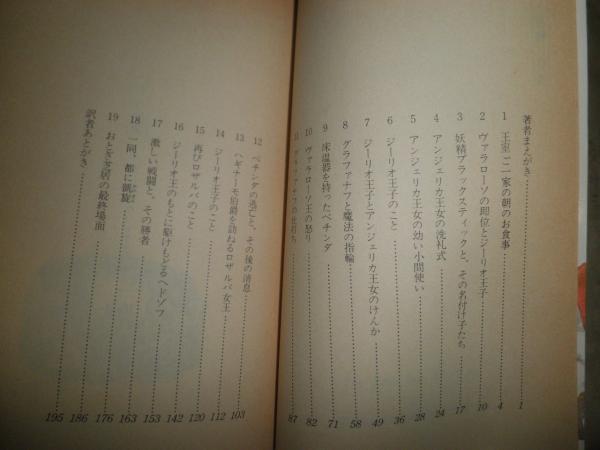 著者まえがき 1
1 王室ご一家の朝のお食事 4
2 ヴァラローソの即位とジーリオ王子 10
3 妖精ブラックスティックと、その名付け子たち 17
4 アンジェリカ王女の洗礼式 24
5 アンジェリカ王女の幼い小間使い 28
6 ジーリオ王子のこと 36
7 ジーリオ王子とアンジェリカ王女のけんか 49
8 グラファナフと魔法の指輪 58
9 床温器を持ったベチンダ 71
10 ヴァラローソ王の怒り 82
11 の仕打ち 87
12 ベチンダの逃亡と、その後の消息
13 ヘギナーモ伯爵を訪ねるロザルバ女王 103
14 ジーリオ王子のこと 112
15 再びロザルバのこと 120
16 ジーリオ王のもとに駆けもどるヘドゾフ 142
17 激しい戦闘と、その勝者 153
18 一同、都に凱旋 163
19 おとぎ芝居の最終場面 176
訳者あとがき 186
195